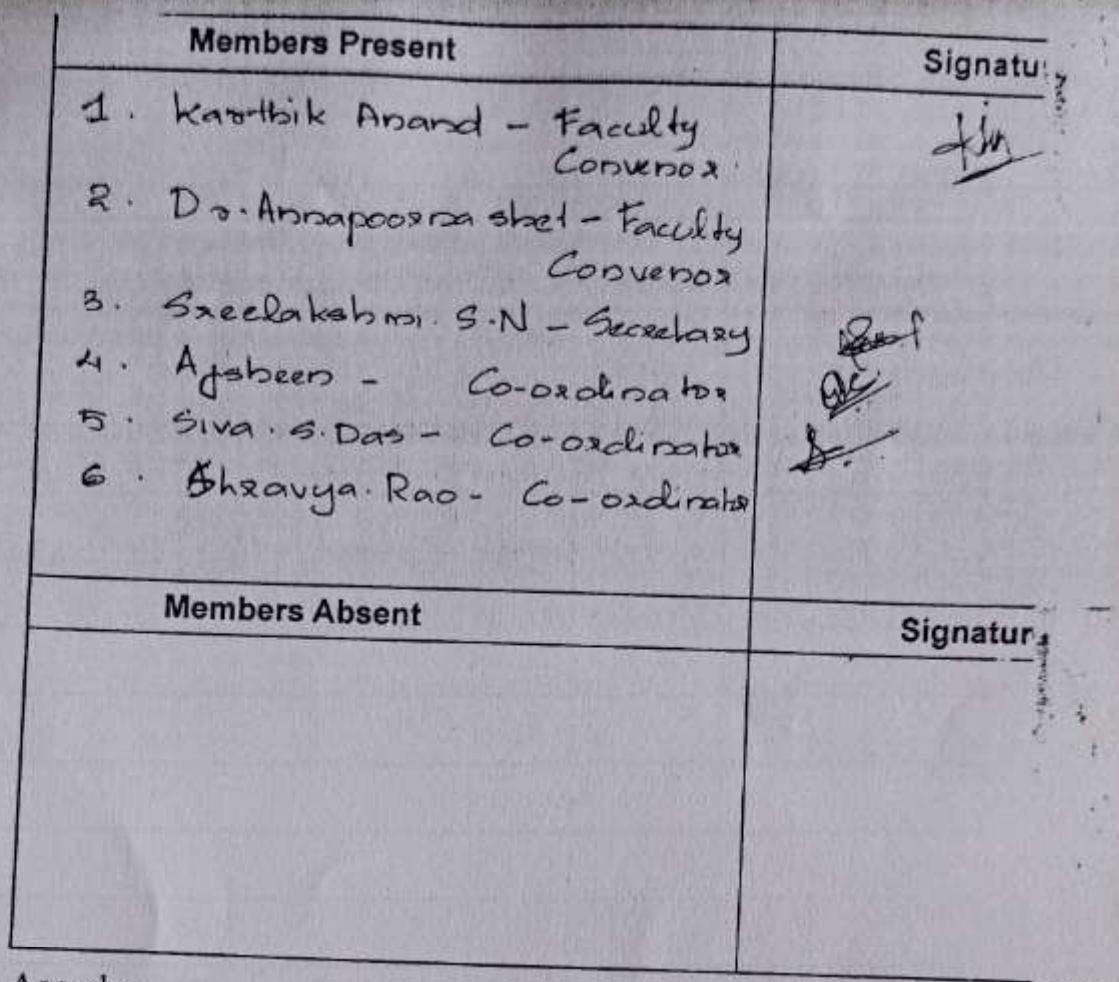 Members Present Signatu
1. Karthik Anand - Faculty
Convenor
2. Dr. Annapoorna shet - Faculty
Convenor
3. Sreelakshmi. S.N - Secretary
4. Afsheen - Co-ordinator
5. Siva. S. Das - Co-ordinator
6. Shravya. Rao - Co-ordinator
Members Absent Signatur